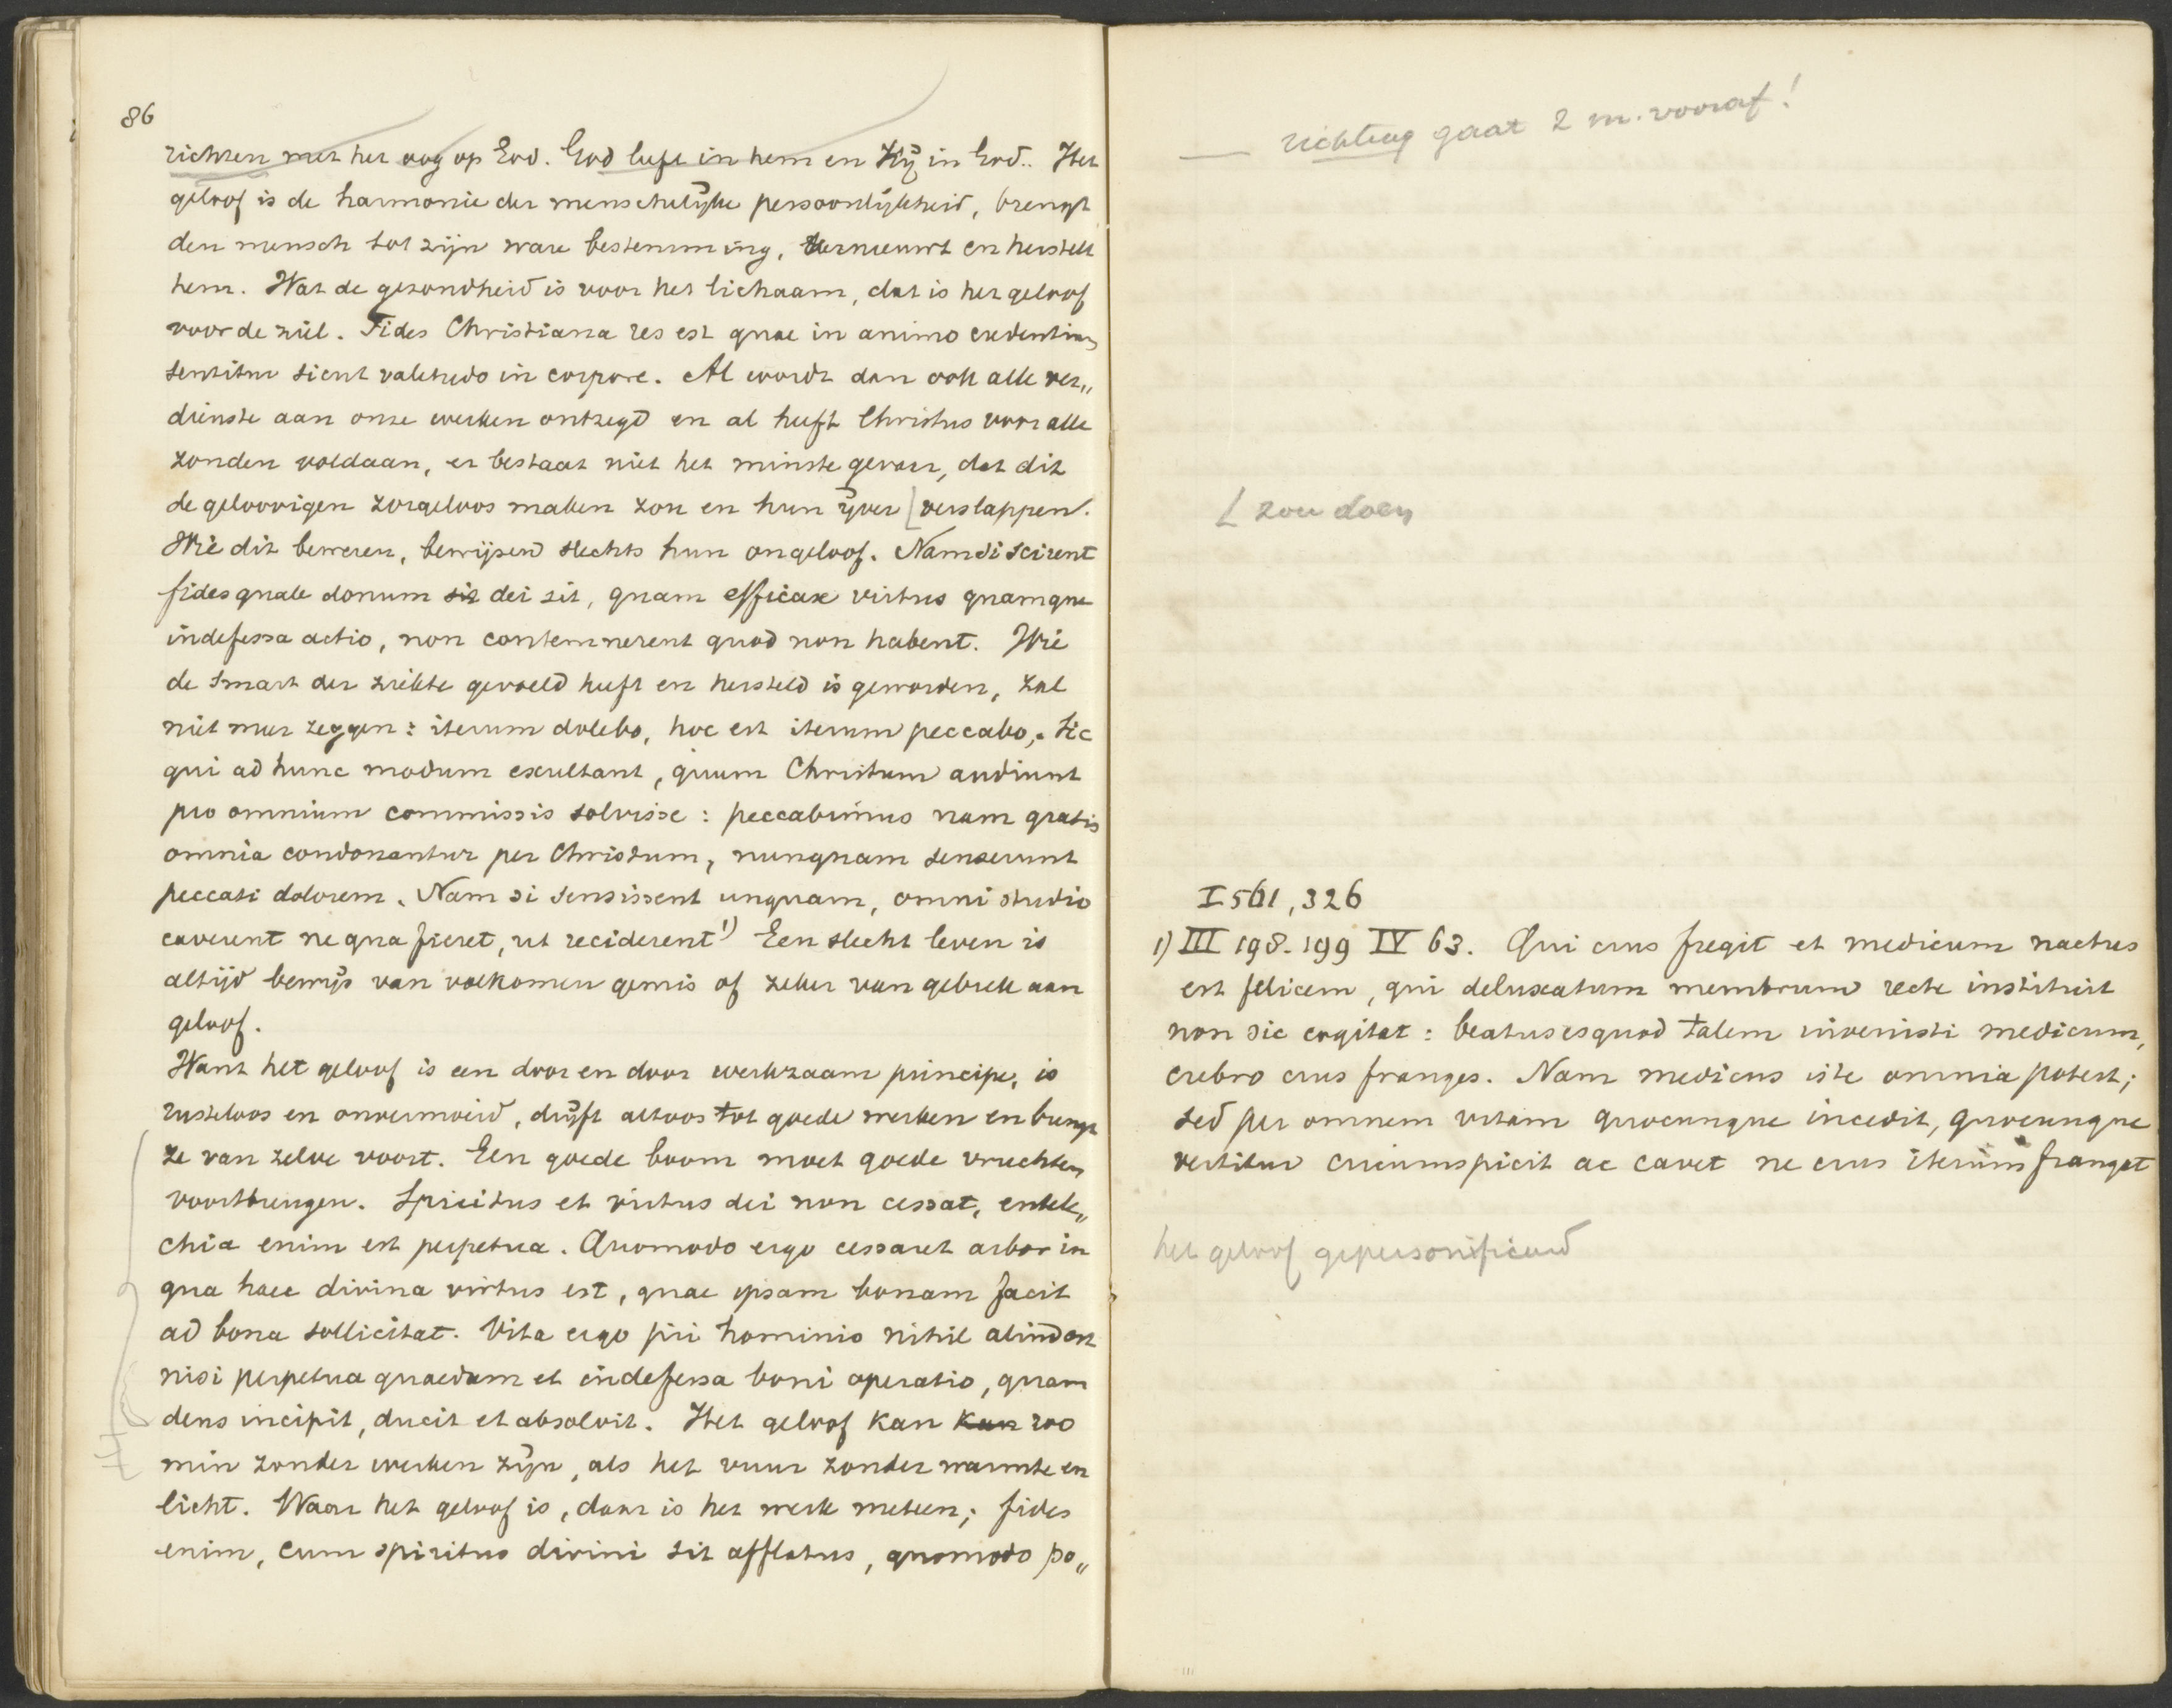 86
richten met het oog op God. God leeft in hem en Hij in God.. Het
geloof is de harmonie der menschelijke persoonlijkheid, brengt
den mensch tot zijn ware bestemming, vernieuwt en herstelt
hem. Wat de gezondheid is voor het lichaam, dat is het geloof
voor de ziel. Fides Christiana res est quae in animo credentium
sentitur sicut valetudo in corpore. Al wordt dan ook alle ver„
dienste aan onze werken ontzegd en al heeft Christus voor alle
zonden voldaan, er bestaat niet het minste gevaar, dat dit
de geloovigen zorgeloos maken zou en hun ijver [verslappen.
Wie dit beweren, bewijzen slechts hun ongeloof. Nam si scirent
fides quale donum sit dei sit, quam efficax virtus quamque
indefessa actio, non contemnerent quod non habent. Wie
de smart der ziekte gevoeld heeft en hersteld is geworden, zal
niet meer zeggen: iterum dolebo, hoc est iterum peccabo,. Sic
qui ad hunc modum exultant, quum Christum audiunt
pro omnium commissis solvisse: peccabimus nam gratis
omnia condonantur per Christum, nunquam senserunt
peccati dolorem. Nam si sensissent unquam, omni studio
caverent ne qua fieret, ut reciderent 1) Een slecht leven is
altijd bewijs van volkomen gemis of zeker van gebrek aan
geloof.
Want het geloof is een door en door werkzaam principe, is
rusteloos en onvermoeid, drijft altoos tot goede werken en brengt
ze van zelve voort. Een goede boom moet goede vruchten
voortbrengen. Spiritus et virtus dei non cessat, entele„
chia enim est perpetua. Quomodo ergo cessaret arbor in
qua haec divina virtus est, quae ipsam bonam facit
ad bona sollicitat. Vita ergo pii hominis nihil aliud est
nisi perpetua quaedam et indefessa boni operatio, quam
deus incipit, ducit et absolvit. Het geloof kan kan zoo
min zonder werken zijn, als het vuur zonder warmte en
licht. Waar het geloof is, daar is het werk meteen; fides
enim, cum spiritus divini sit afflatus, quomodo po„
richting gaat 2 m. vooraf!
[ zou doen
I 561, 326
1) III 198-199 IV 63. Qui crus fregit et medicum nactus
est felicem, qui deluxatum membrum recte instituit
non sic cogitat: beatus es quod talem invenisti medicum,
crebro crus franges. Nam medicus iste omnia potest;
sed per omnem vitam quocunque incedit, quocunque
vertitur circumspicit ac cavet ne crus iterum frangat
het geloof gepersonificeerd